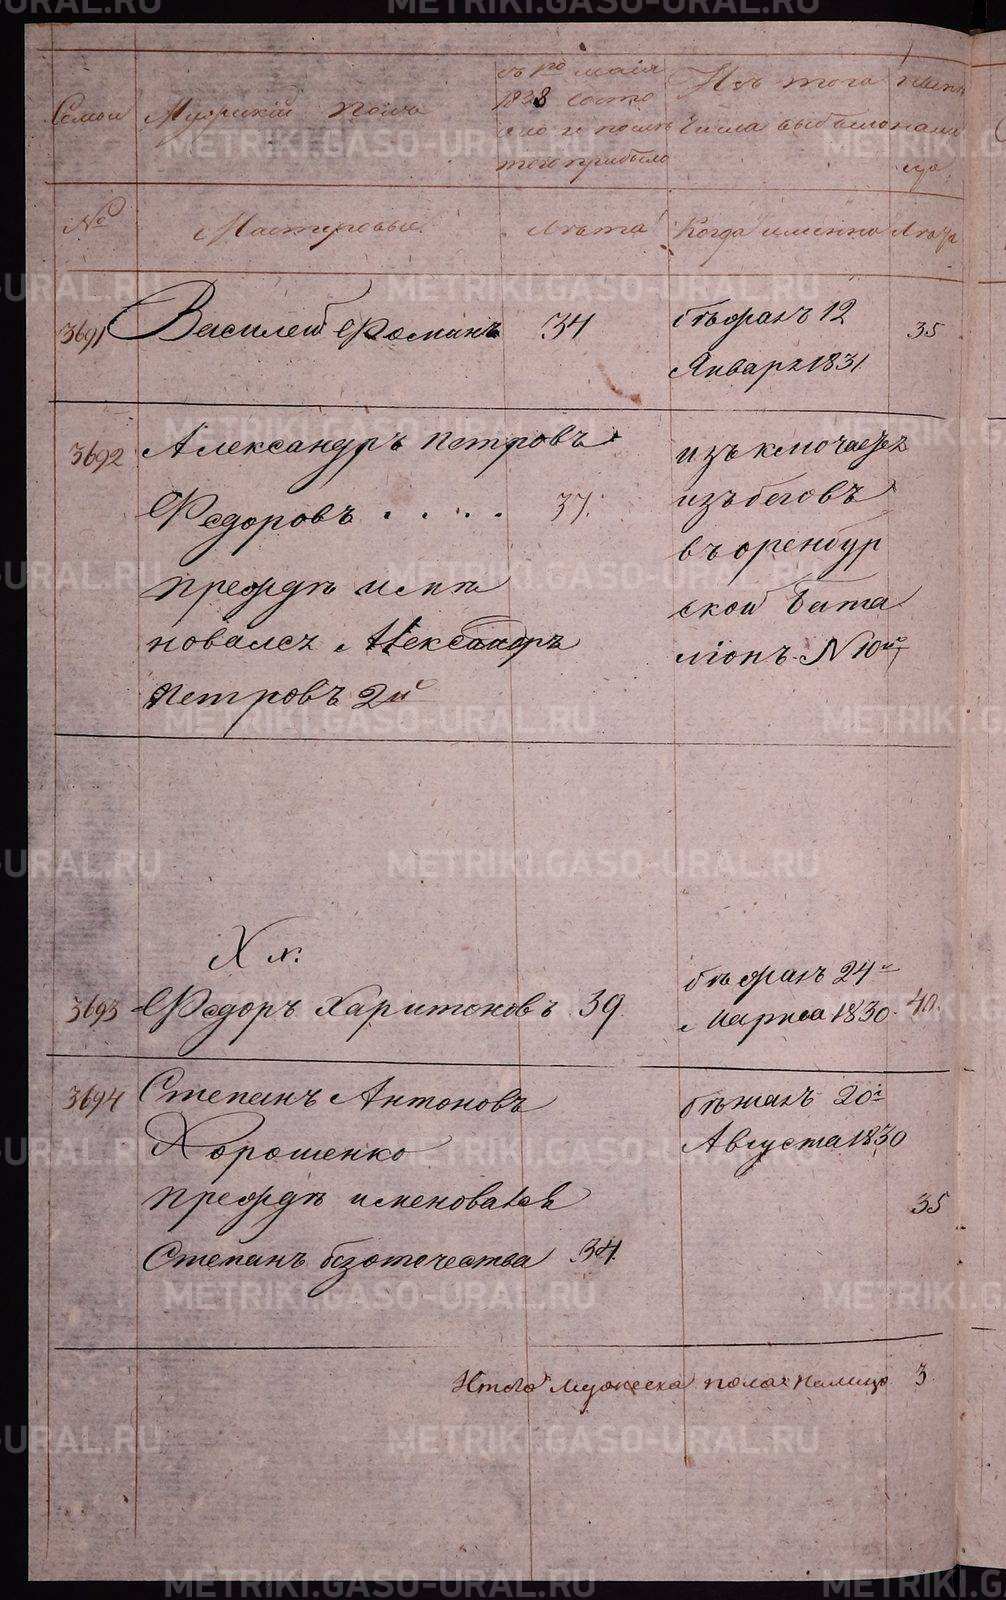 Семьи
Мужскій полъ
съ 1го маія
1828 состо
яло и послѣ
того прибыло
Изъ того
числа выбыло
нынѣ
нали
цо
№
Мастеровые
Лѣта
Когда имянно
Лѣта
3691
Василей Фоминъ
34
бѣжалъ 12
Января 1831
35
3692
Александръ Петровъ
Федоровъ . . . .
37.
прежде имя
новался Александръ
Петровъ 2й
изъключается
изъбеговъ
въ оренбур
ской бата
ліонъ N 10й
Хх.
3693
Федоръ Харитоновъ
39
бѣжалъ 24й
Марта 1830.
40.
3694
Степанъ Антоновъ
Хорошенко
прежде именовался
Степанъ безотечества
34
бѣжалъ 20й
Августа 1830
35
Итого мужеска пола налицо
3
METRIKI.GASO-URAL.RU